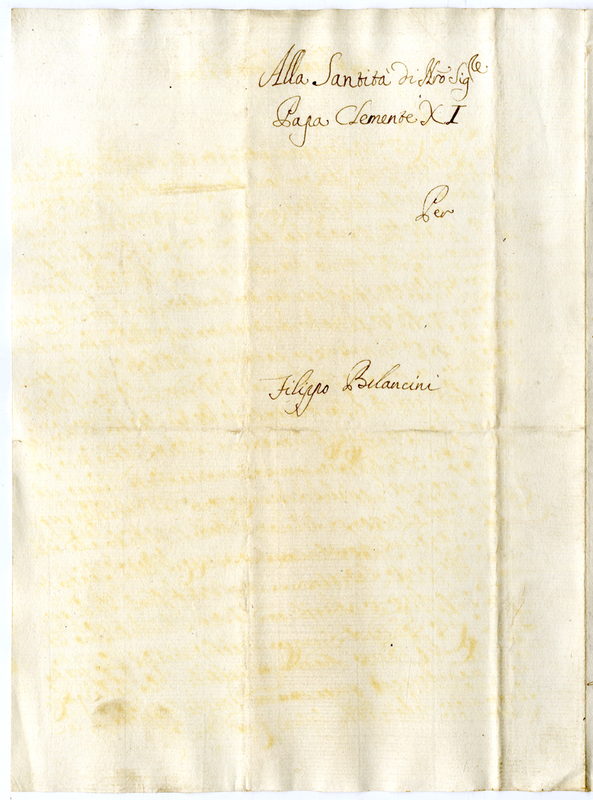 Alla Santità di Nro Sigre
Papa Clemente XI
Per
Filippo Bilancini